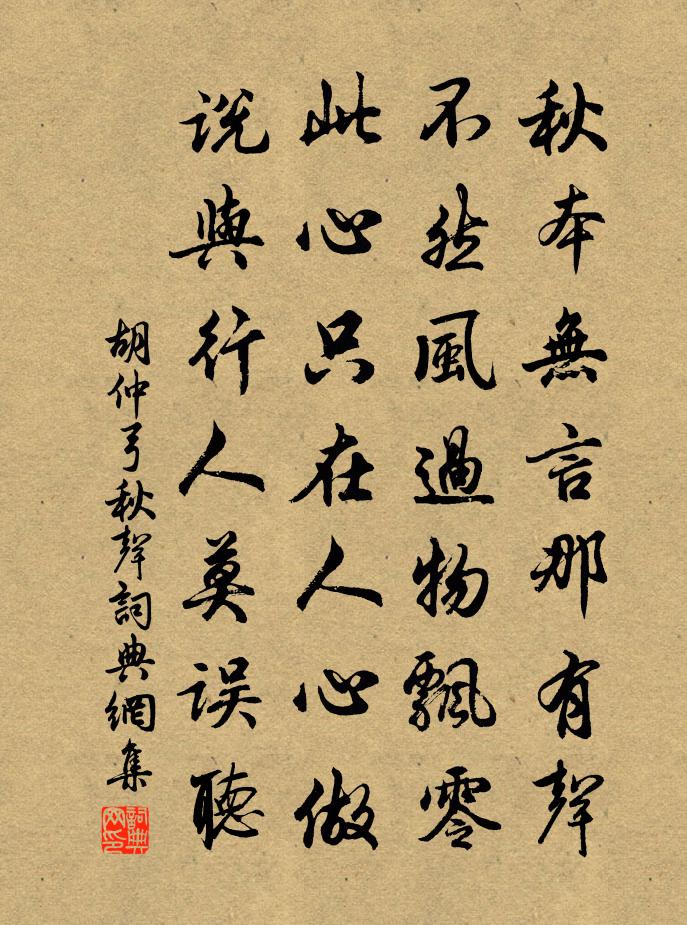 秋本無言那有聲
不然風過物飄零
此心只在人心做
説與行人莫误聽
胡仲弓秋聲詞典網集
詞典網印